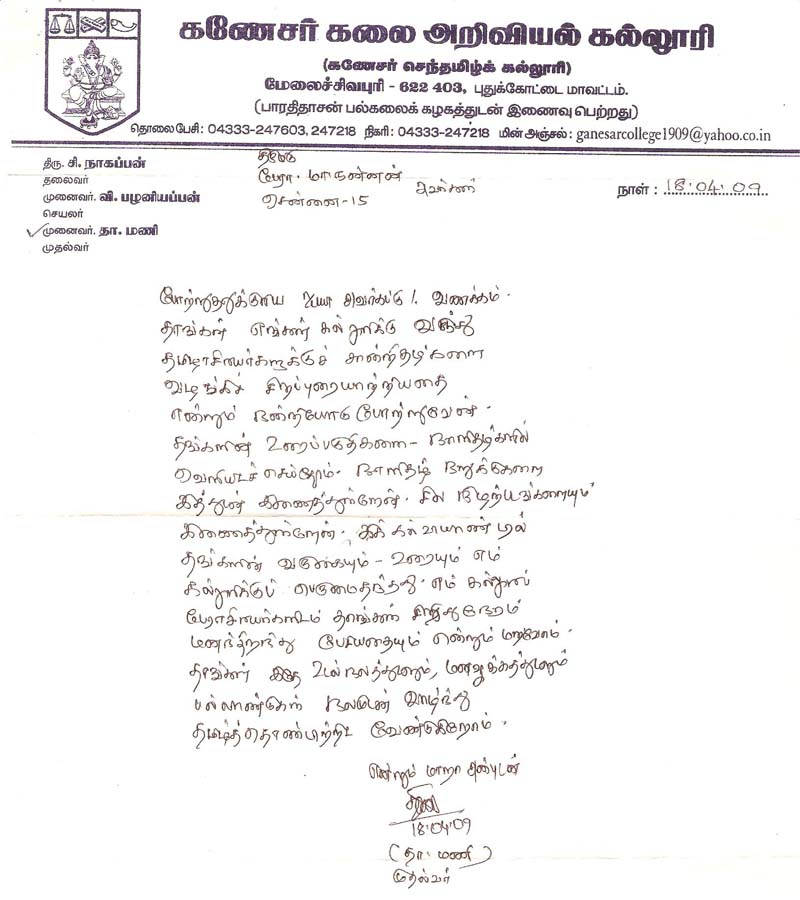 கணேசர் கலை அறிவியல் கல்லூரி
(கணேசர் செந்தமிழ்க் கல்லூரி)
மேலைச்சிவபுரி - 622 403, புதுக்கோட்டை மாவட்டம்.
(பாரதிதாசன் பல்கலைக் கழகத்துடன் இணைவு பெற்றது)
தொலைபேசி: 04333-247603, 247218 நிகரி: 04333-247218 மின் அஞ்சல்: ganesarcollege1909@yahoo.co.in
திரு. சி. நாகப்பன்
தலைவர்
முனைவர். வி. பழனியப்பன்
செயலர்
முனைவர். தா. மணி
முதல்வர்
பேரா. மா. நன்னன்
அவர்கள்
சென்னை-15
நாள் : 18.04.09
போற்றுதலுக்குரிய ஐயா அவர்கட்கு வணக்கம்.
தாங்கள் எங்கள் கல்லூரிக்கு வந்து
தமிழாசிரியர்களுக்குச் சான்றிதழ்களை
வழங்கிச் சிறப்புரையாற்றியதை
என்றும் நன்றியோடு போற்றுவேன்.
தங்களின் உரைப்பகுதிகளை - நாளிதழ்களில்
வெளியிடச் செய்தோம். நாளிதழ் நறுக்குகளை
இத்துடன் இணைத்துள்ளேன். சில நிழற்படங்களையும்
இணைத்துள்ளேன். இக் கல்வியாண்டில்
தங்களின் வருகையும் - உரையும் எம்
கல்லூரிக்குப் பெருமைதந்தது. எம் கல்லூரிப்
பேராசிரியர்களிடம் தாங்கள் சிறிதுநேரம்
மனந்திறந்து பேசியதையும் என்றும் மறவோம்.
தாங்கள் இதே உடல்நலத்துடனும், மனஊக்கத்துடனும்
பல்லாண்டுகள் நலமுடன் வாழ்ந்து
தமிழ்த்தொண்டாற்றிட வேண்டுகிறோம்.
என்றும் மாறா அன்புடன்
18.04.09
(தா. மணி)
முதல்வர்